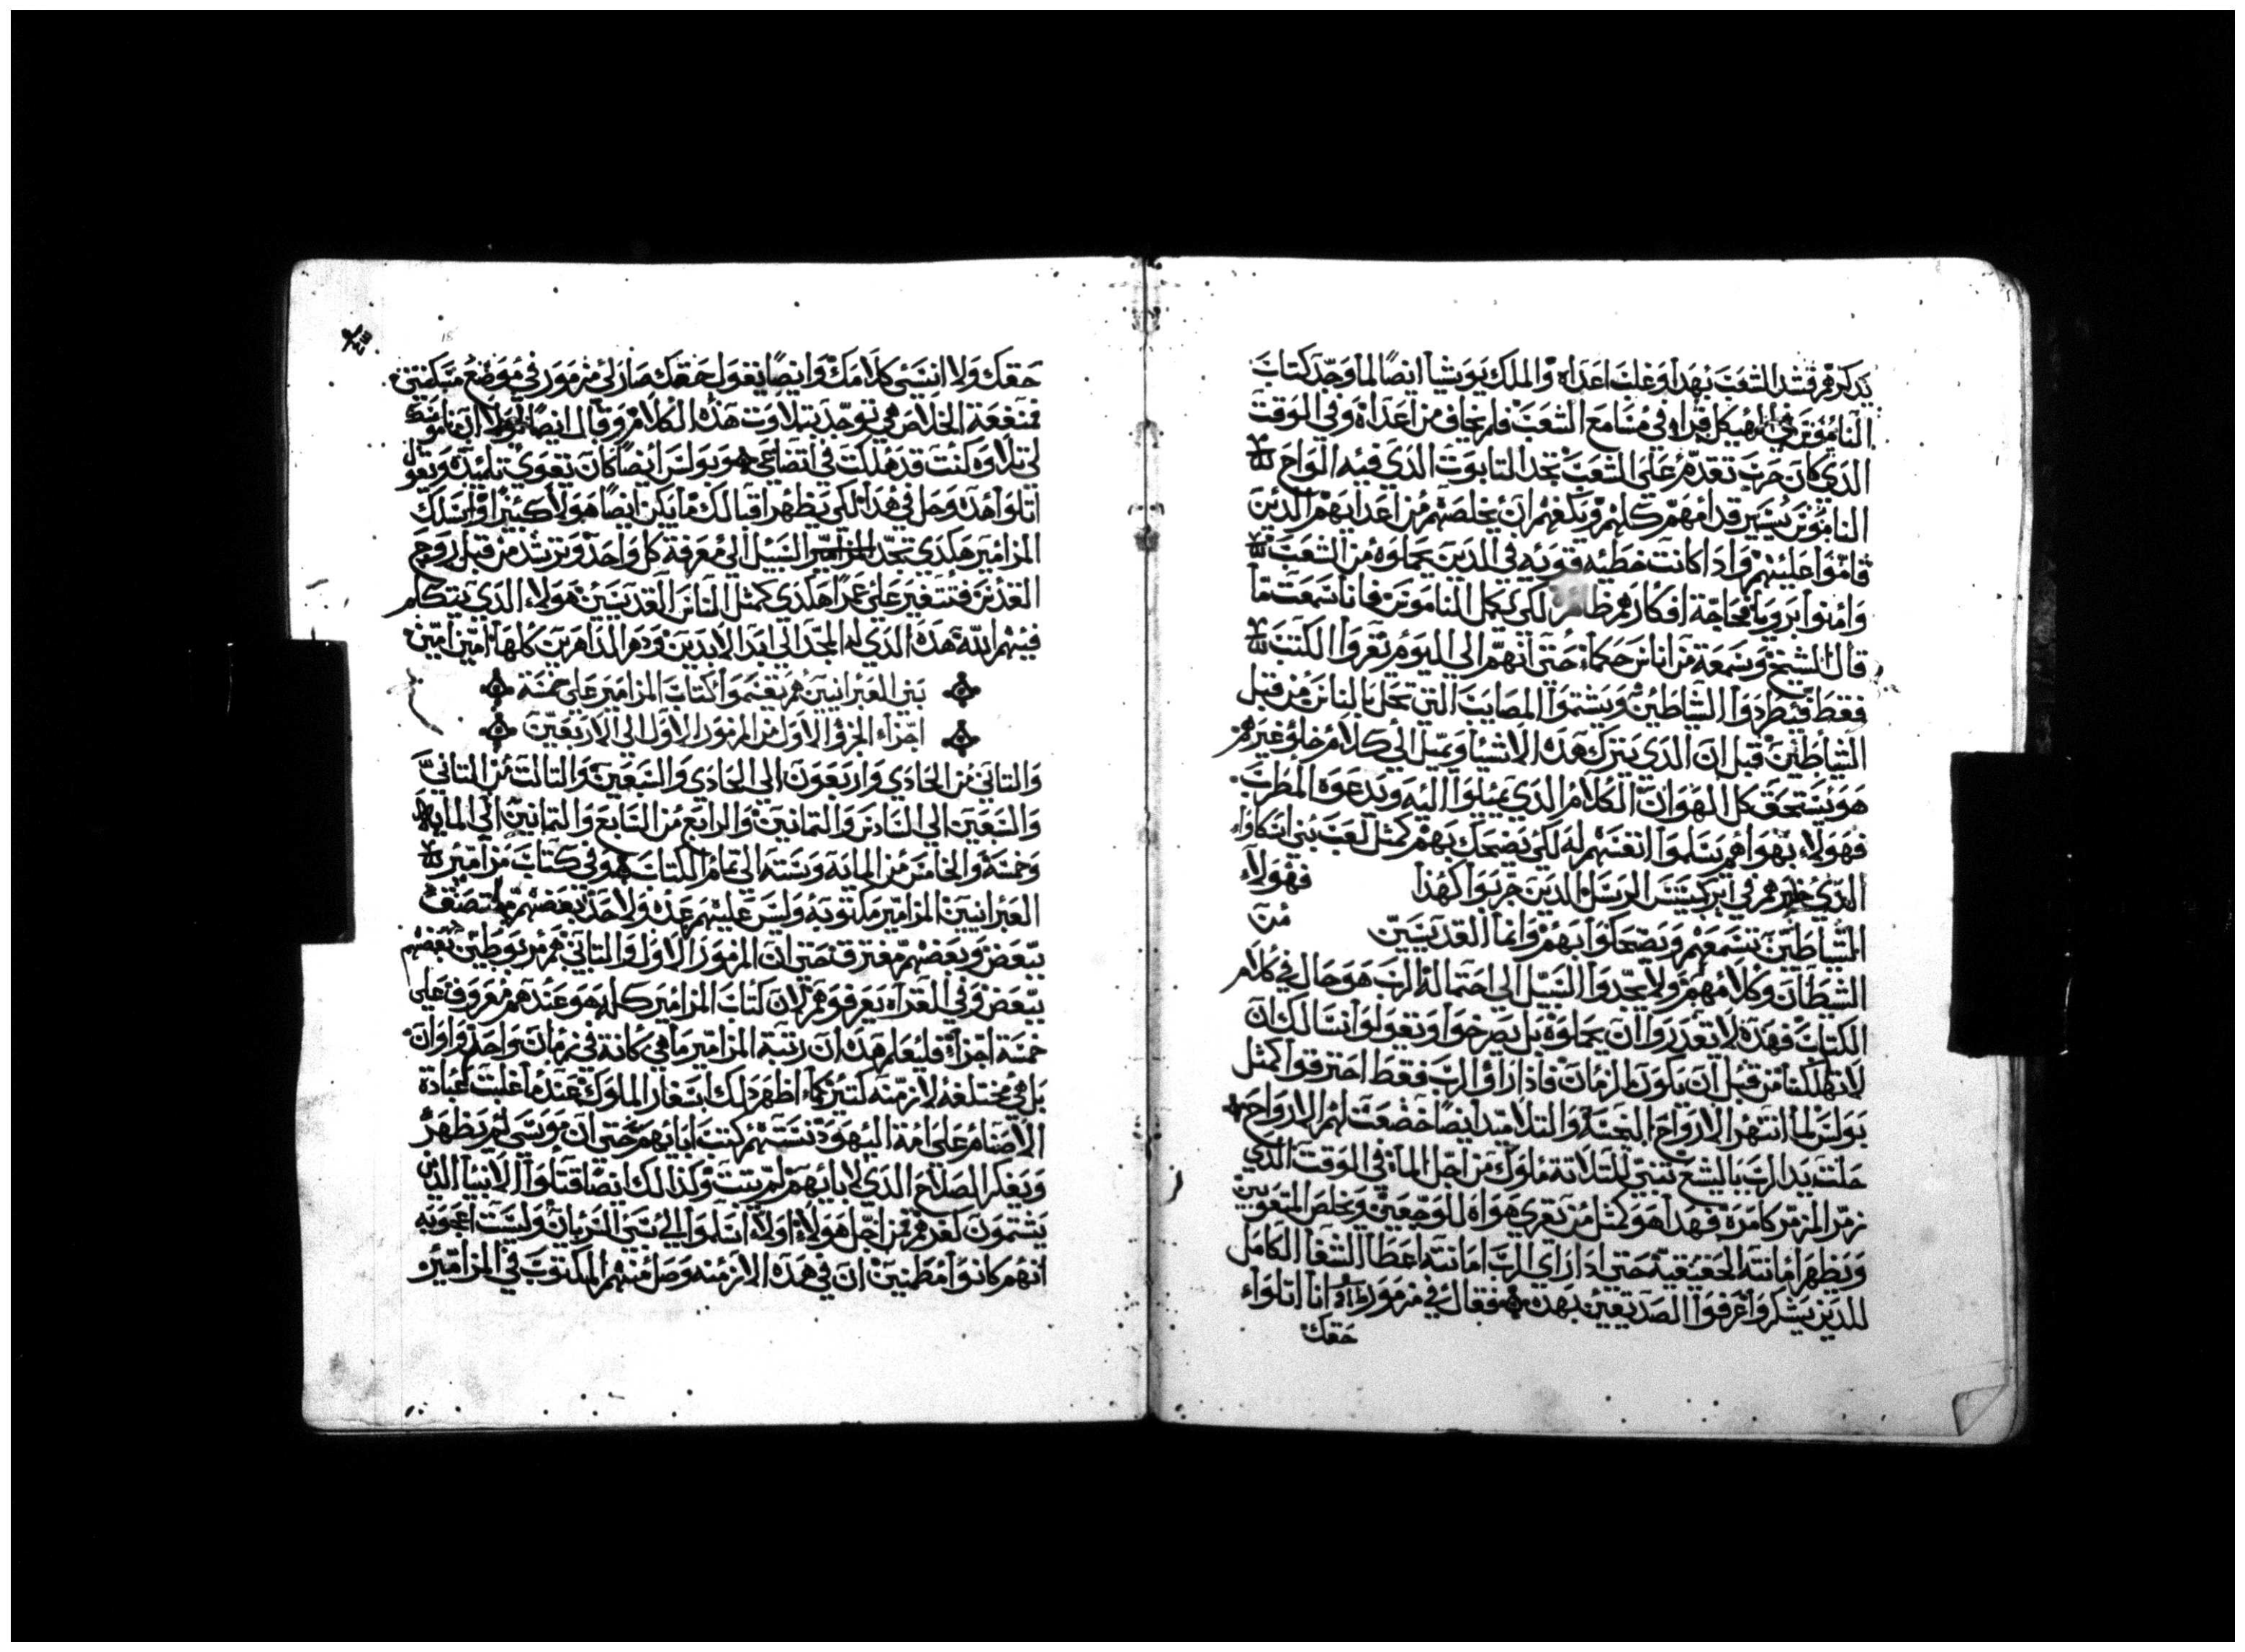 يدكرهم فشد الشعب بهدا وغلب اعداه والملك يوشيا ايضا لما وجد كتاب
الناموس في الهيكل قراه في مسامع الشعب فلم يخاف من اعداه وفي الوقت
الدي كان حرب تقدم على الشعب تجد التابوت الدي فيه الواح
الناموس يسير قدامهم كلهم ويكفهم ان يخلصهم من اعدايهم الدين
قاموا عليهم وادا كانت خطيه قويه في الدين يحملوه من الشعب
وامنوا بروميا فحاجة افكارهم ظاهر لكي يكمل الناموس فانا سمعت ما
قال الشيخ وسمعة من اناس حكماء حتى انهم الى اليوم تقروا الكتب
فقط فيطردوا الشياطين ويشتموا المصايب التي تحل بالناس من قبل
الشياطين قيل ان الدي يترك هده الاشيا ويميل الى كلام خلو غيرهم
هو يستحق كل الهوان الكلام الدي يميلوا اليه ويدعوه المطرب
فهولاء بهواهم يسلموا انفسهم له لكي يضحك بهم كمثل لعب بني اسكاواء
الدي خبرهم في ابركسيس الرسل الدين جربوا كهدا فهولاء
الشياطين تسمعهم ويضحكوا بهم وانما القديسين من
الشيطان وكلامهم ولا يجدوا السبيل الى احتماله الرب هو حال في كلام
الكتاب فهده لا تقدروا ان يحملوه بل يصرخوا ويقولوا نسالك ان
لا تهلكنا من قبل ان يكون الزمان فادا راو الرب فقط احترقوا كمثل
بولس لما انتهر الارواح النجسه والتلاميد ايضا خضعت لهم الارواح
حلت يد الرب باليشع تنبى للتلاتة ملوك من اجل الماء في الوقت الدي
زمر المزمر كامره فهدا هو كمثل من تقرى هواه للوجعين ويخلص المتعوبين
ويظهر امانته الحقيقيه حتى ادا راى الرب امانته اعطا الشفا الكامل
للدين يشكروا عرفوا الصديقين بهده فقال في مزمور انا اتلواء
حقك
حقك ولا انسى كلامك وايضا يقول حقك صار لي مزمور في موضع مسكنتي
فمنفعة الخلاص هي توجد بتلاوت هده الكلام وقال ايضا لولا ان ناموسك
لي تلاوه كنت قد هلكت في اتضاعي هو بولس ايضا كان يقوي تلميده ويقول
اتلوا هده وحل في هدا لكي يظهر اقبالك ما يكن ايضا هولا كثيرا وايسلك
المزامير هكدي تجد السبيل الى معرفة كل واحد وترشد من قبل روح
القدس فتتغير على عمرا هكدي كمثل الناس القديسين هولاء الدي يتكلم
فيهم الله هده الدي له المجد الى ابد الابدين ودهر الداهرين كلها امين امين
بني العبرانيين هم يقسموا كتاب المزامير على خمسة
اجزاء الجزو الاول من المزمور الاول الى الاربعين
والتاني من الحادي واربعون الى الحادي والسبعين والتالت من التاني
والسبعين الى السادس والتمانين والرابع من السابع والتمانين الى المايه
وخمسة والخامس من المايه وسته الى تمام الكتاب هو في كتاب مزامير
العبرانيين المزامير مكتوبه وليس عليهم عده ولاحد بعضهم ملتصق
ببعض وبعضهم مفترق حتى ان المزمور الاول والتاني هم مربوطين بعضهم
ببعض وفي القراه يعرفوهم لان كتاب المزامير كله هو عندهم معروف على
خمسة اجزاء فليعلم هده ان رتبة المزامير ما هي كانة في زمان واحد واوان
بل هي مختلفه لازمنه كتير كما اظهر دلك اسفار الملوك عندما غلبت عبادة
الاصنام على امة اليهود نسيتهم كتب ابايهم حتى ان موسى لم يظهر
ويفكر المصلاح الدي لابايهم لم يتبت وكذالك ايضا قتلوا الانبيا الذين
يشتمون لغدهم من اجل هولاء اولاء اسلموا الى سبي السريان وليست اعجوبه
انهم كانوا مطمنين ان في هده الازمنه وصل منهم المكتوب في المزامير